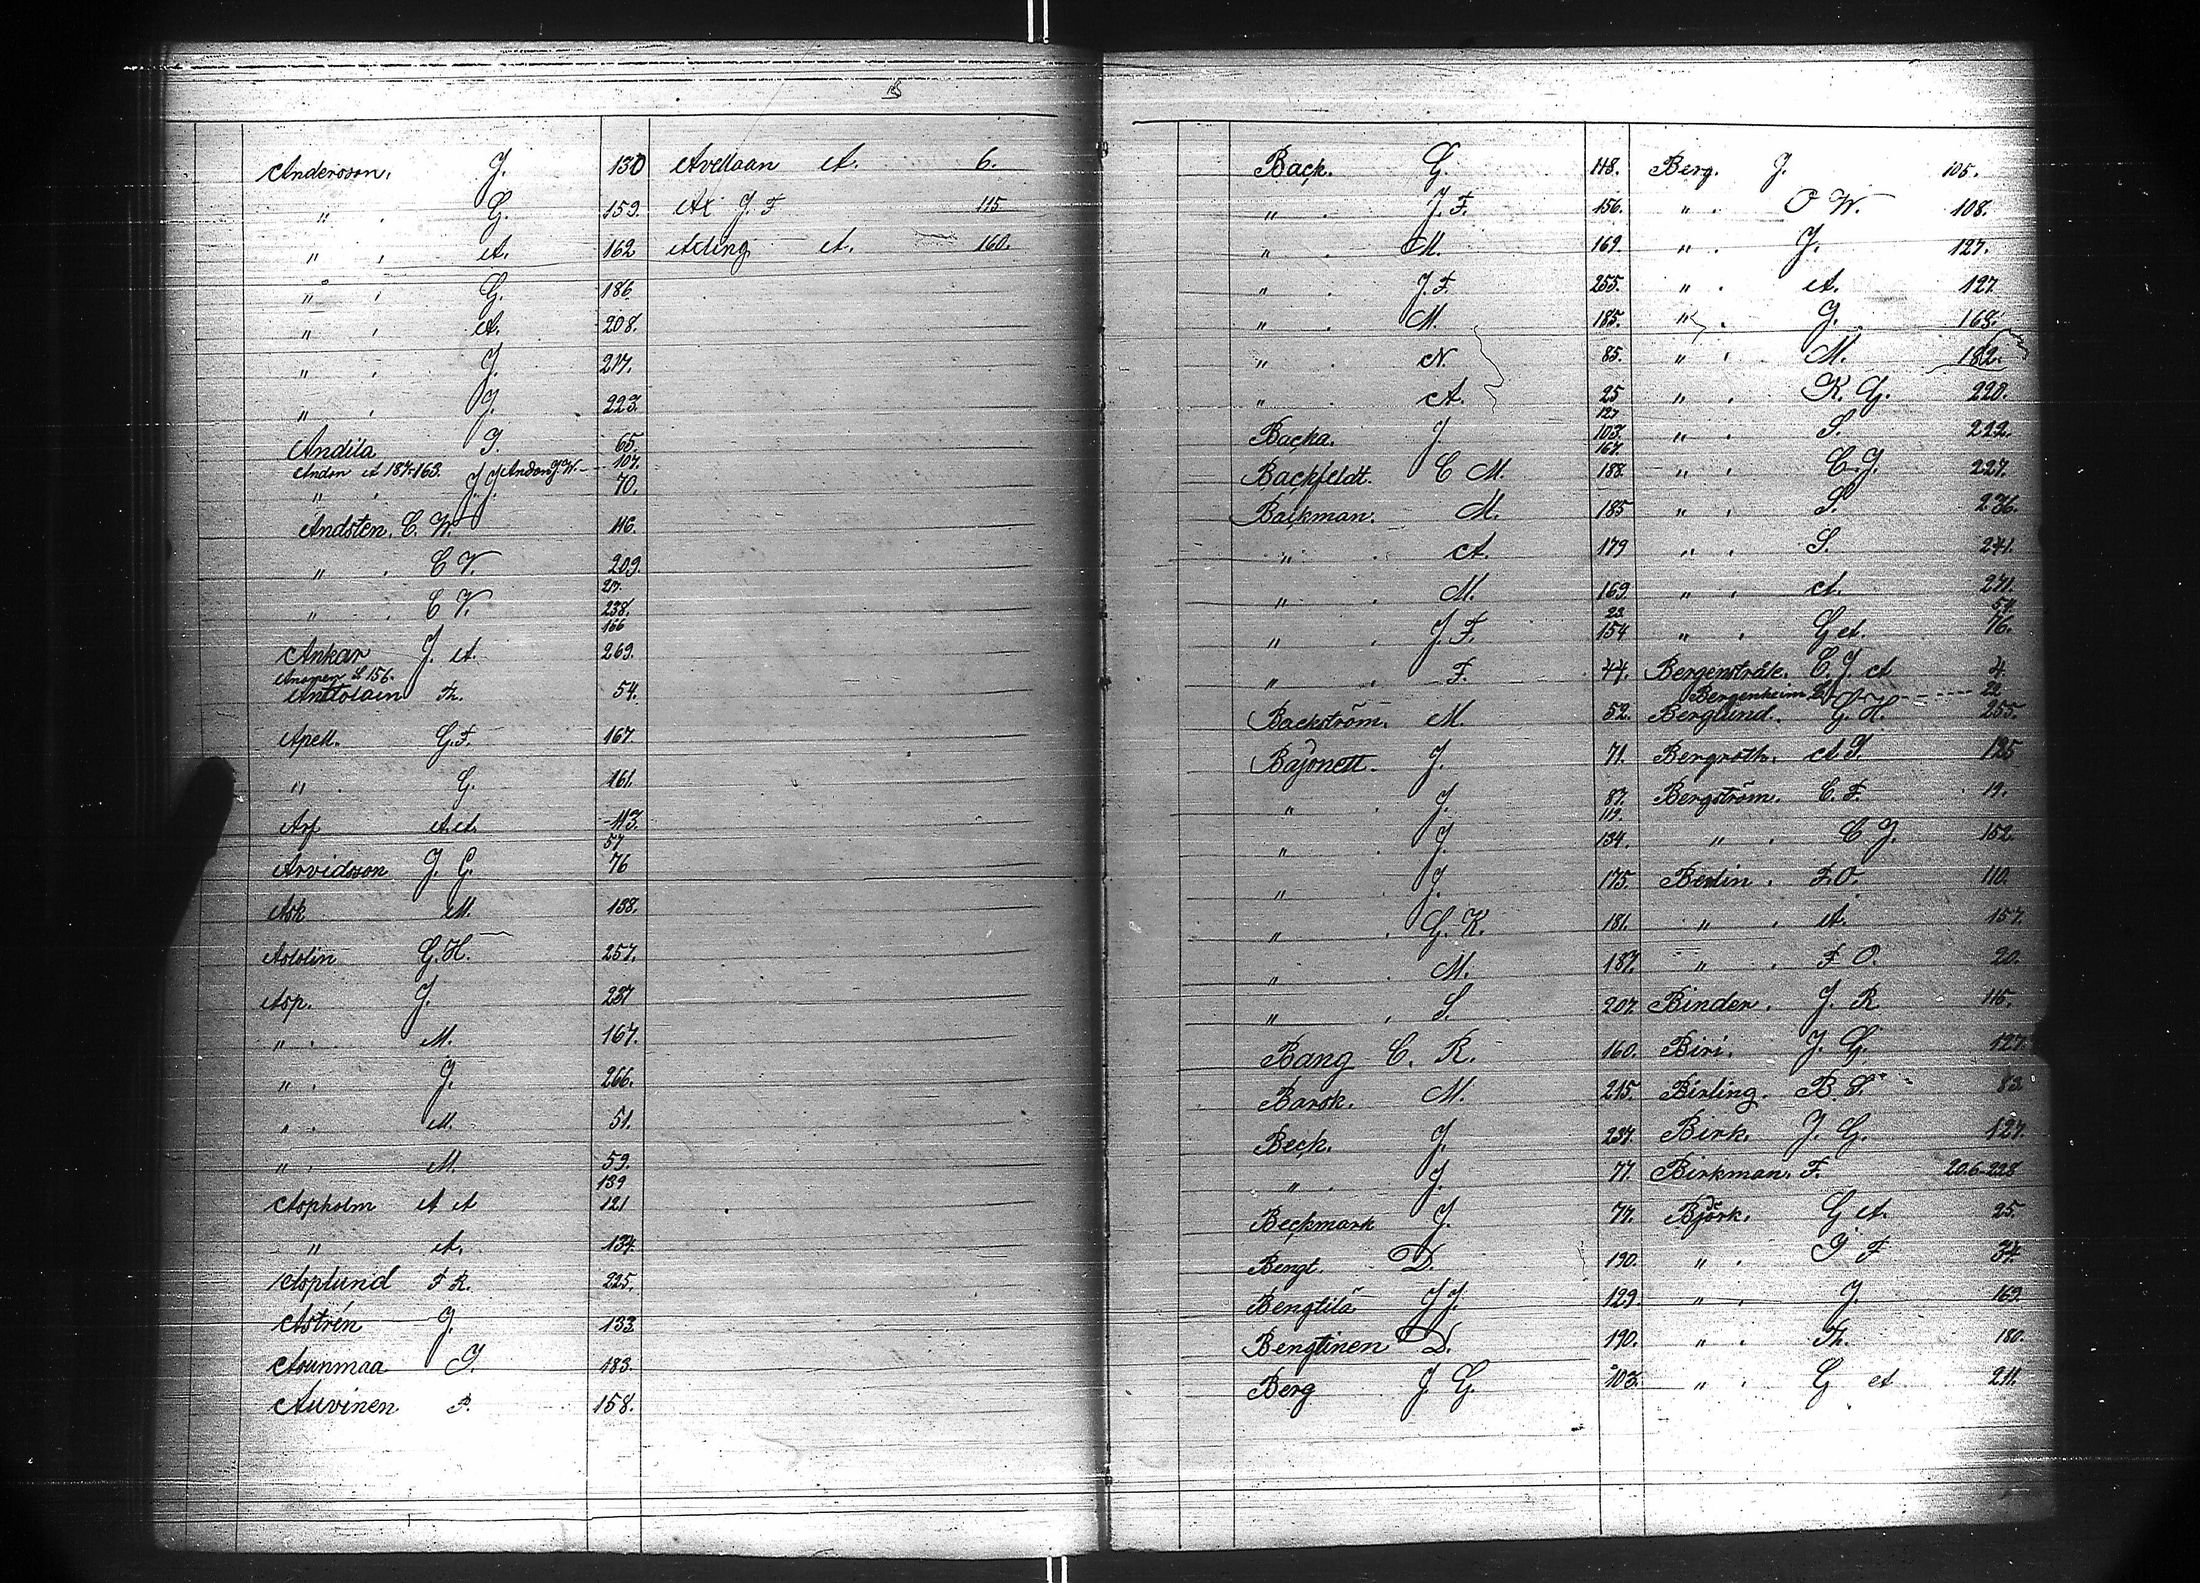 Andersson. J. 130
" . G. 159.
" . A. 162
" . G. 186
" . A. 208.
" . J. 217.
" . J. 223.
Andila J. 65.
Andsn A 187-163. Andsn J. W. - 107.
" . J. J. 70.
Andsten. C. W. 116.
" . C V. 209.
27.
" . C V. 238.
166
Ankar J. A. 269.
L 156.
Anttolain Th. 54.
Apell. G. F. 167.
" . G. 161.
Arf A. A. 113.
57
Arvidsson J. G. 76
Ask M. 138.
Asklin G. H. 257.
Asp. J. 237
" . M. 167.
" . J. 266.
" . M. 51.
" . M. 59.
139
Aspholm A A 121
" A. 134.
Asplund F R. 225.
Astrén J. 133
Asunmaa J. 183.
Auvinen P. 158.
Avellaan A. 6.
Ax J. F 115
Axling A. 160.
Back. G. 118.
" . J. F. 156.
" . M. 169.
" . J. F. 255.
" . M. 185.
" . N. 85.
" . A. 25
127
Backa. J 103.
167.
Backfeldt. C M. 188.
Backman. M. 185
" . A. 179
" . M. 169
23
" . J. F. 154
" . F. 44.
Backström. M. 52.
Bajonett. J. 71.
" . J. 87.
119.
" . J. 134.
" . J. 175.
" . G. K. 181.
" . M. 187.
" . S. 207.
Bang C. R. 160.
Barsk. M. 215.
Beck. J. 237.
" . J. 77.
Beckmark J. 77.
Bengt. D. 190.
Bengtilä J J. 129.
Bengtinen D. 190.
Berg J. G. 103.
Berg. J. 105.
" . O W. 108.
" . J. 127.
" . A. 127
" . J. 163.
" . M. 182.
" . K. G. 220.
" . S. 222.
" . C. J. 227.
" . S. 236.
" . S. 241.
" . A. 271.
57
" . G A. 76.
Bergenstråle. C. J. A 4.
Bergenheim
Berglund. G. H. 255.
Bergroth. A J. 125
Bergström. C. F. 19.
" . C J. 152
Berlin . F. O. 110.
" . A. 157.
" . F O. 20.
Binder. J. R 115.
Biri. J. G. 127.
Birling. B. S 83
Birk. J. G. 127.
Birkman. F. 206-228
Björk. G A. 25.
" . J F 34.
" . J. 169.
" . Th. 180.
" . G A 211.